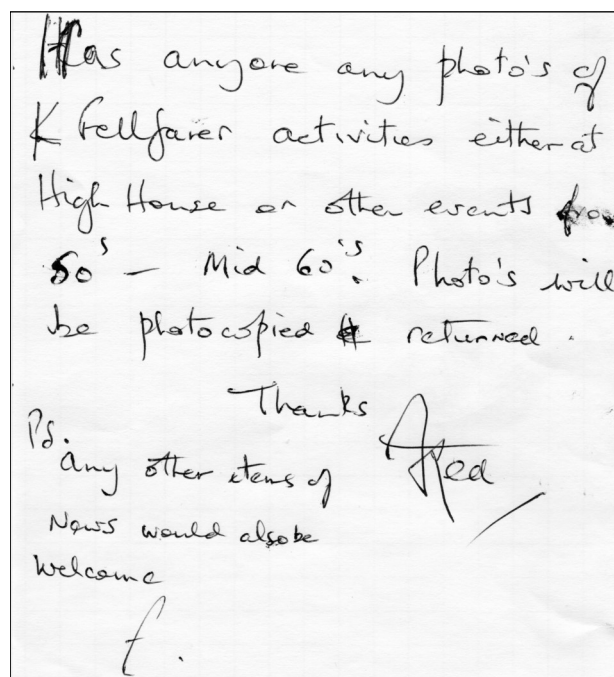 Has anyone any photo's of
K Fellfarer activities either at
High House or other events from
50's – Mid 60's. Photo's will
be photocopied & returned.
Thanks
PS.
any other items of
News would also be
welcome
f.